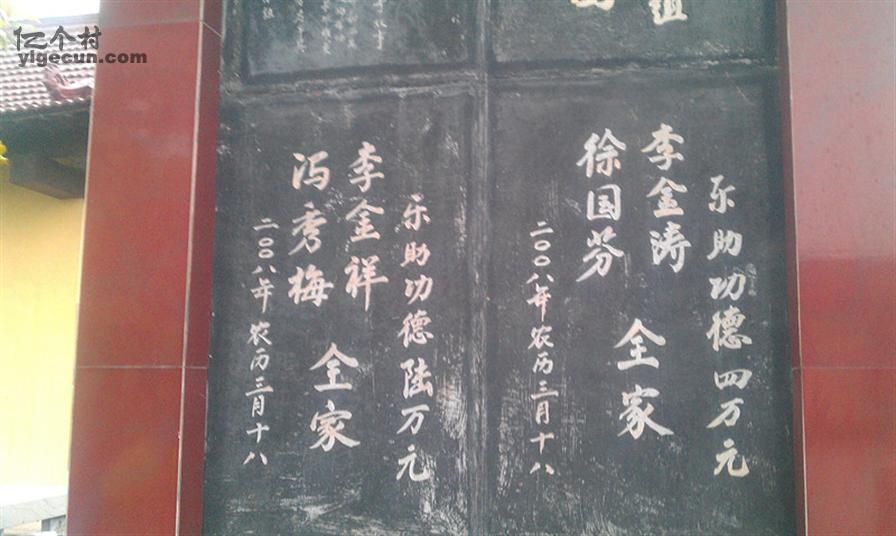 亿个村
yigecun.com
祖
乐助功德四万元
李金涛
徐国芬
全家
二〇〇八年农历三月十八
乐助功德陆万元
李金祥
冯秀梅
全家
二〇〇八年农历三月十八